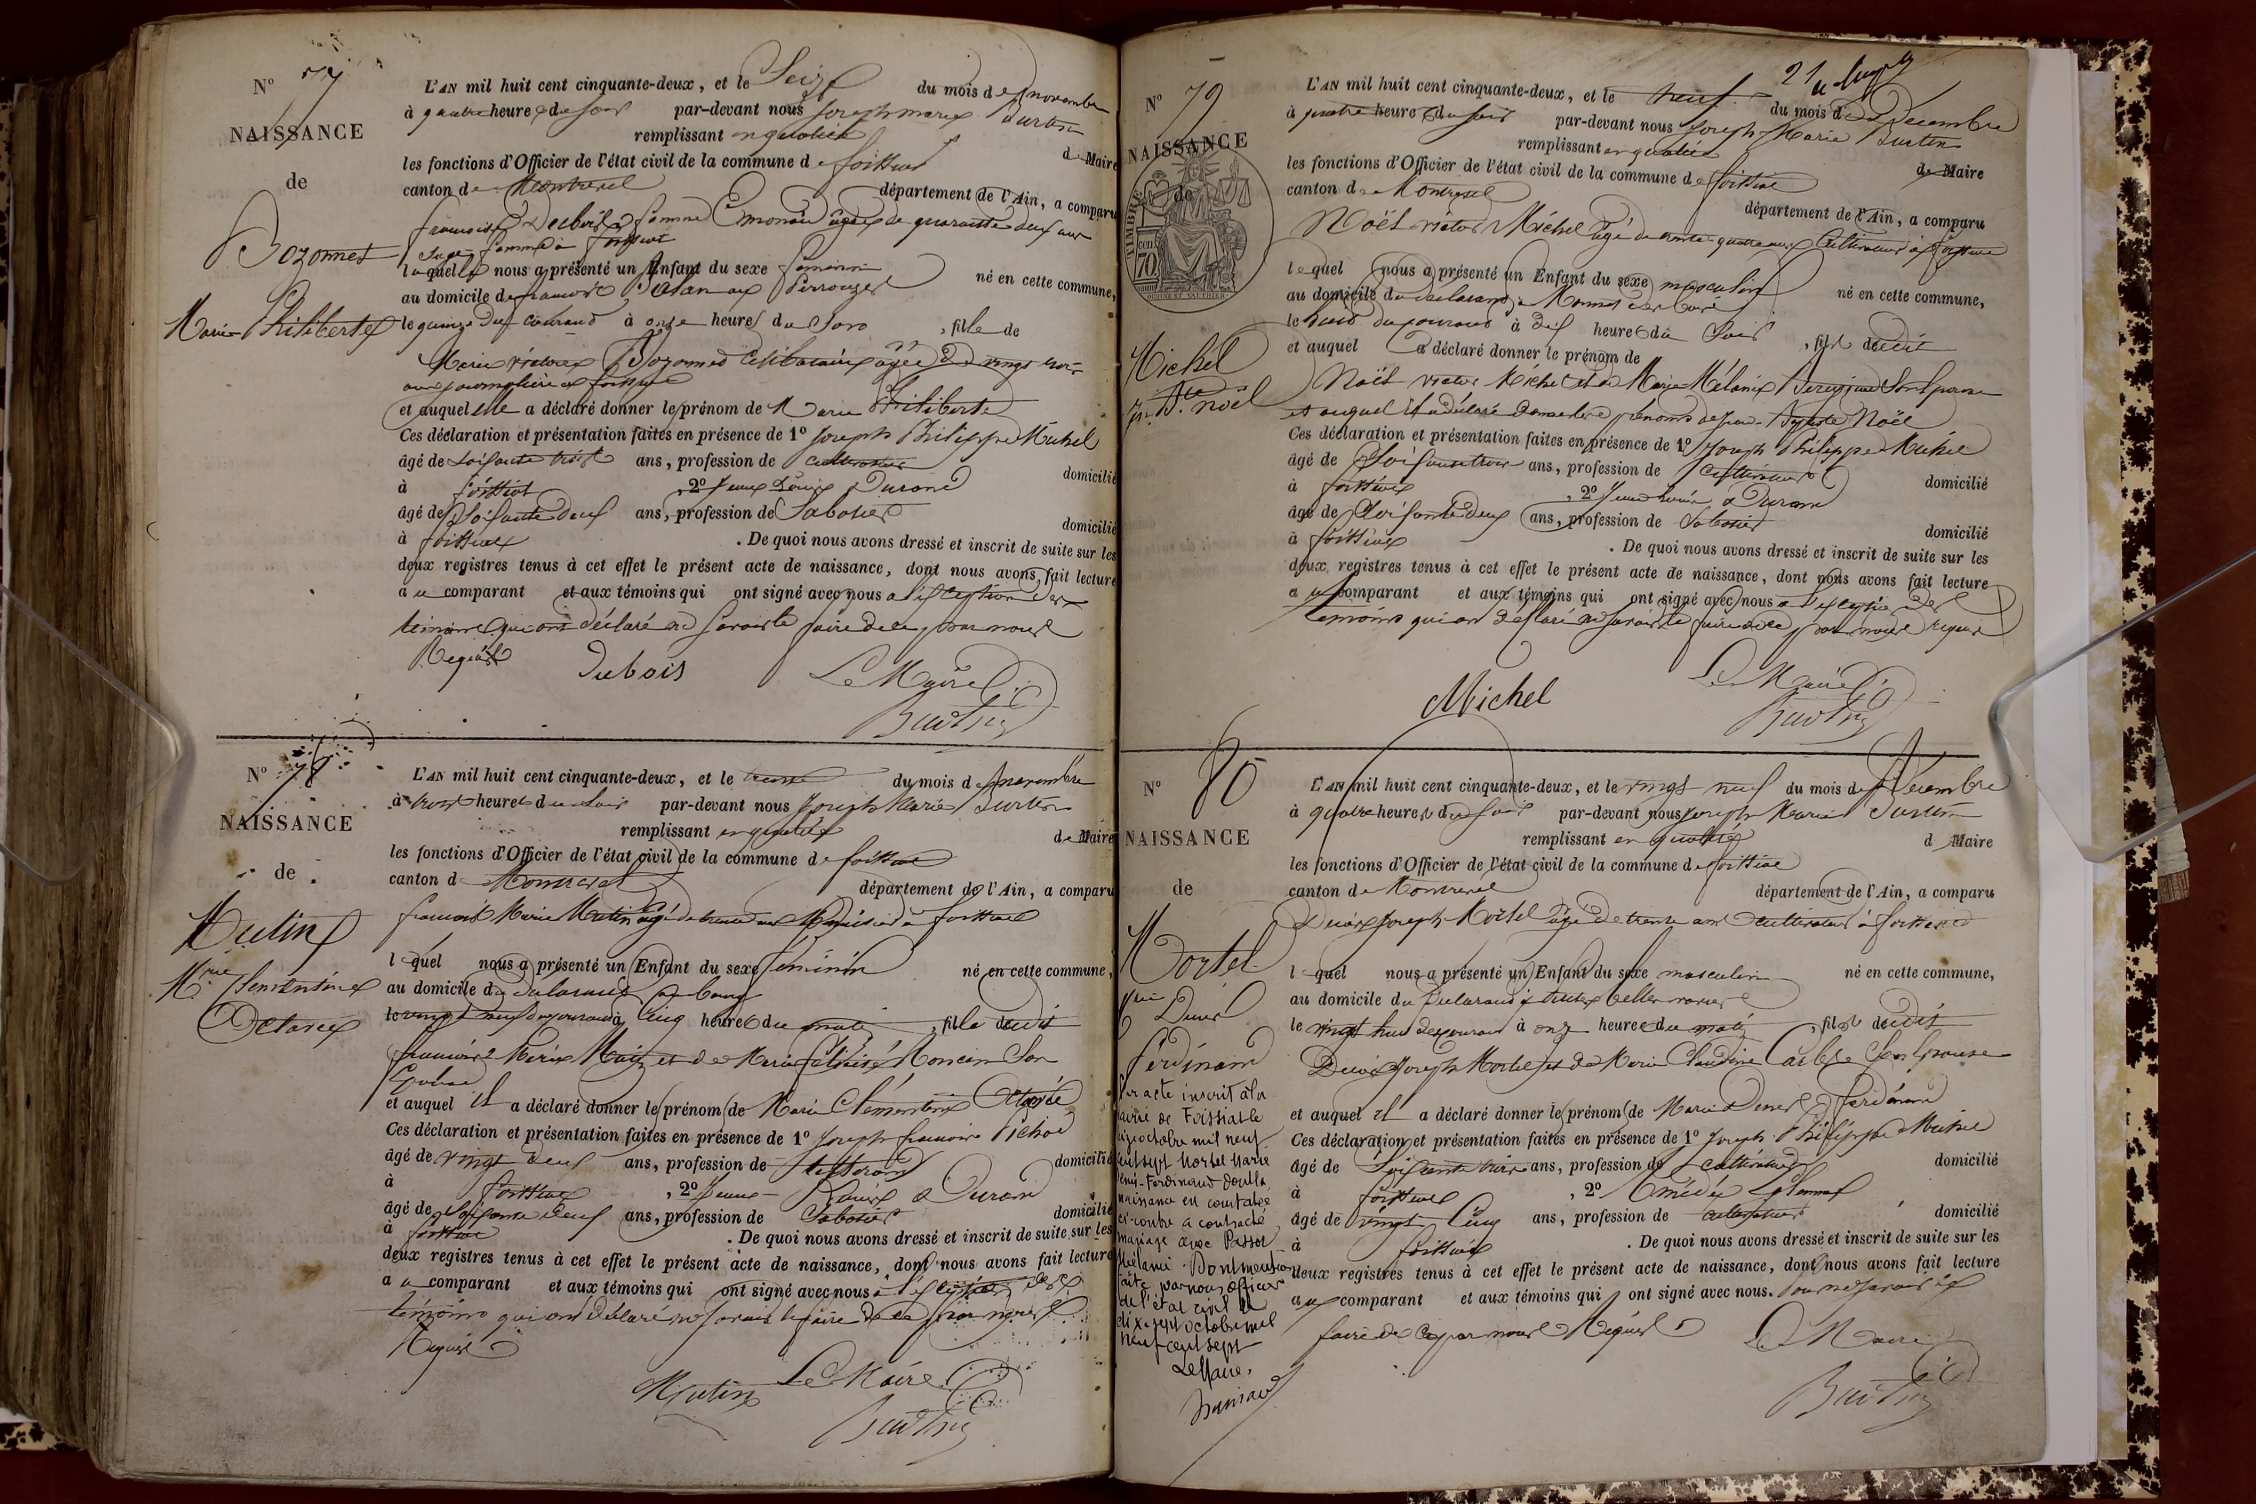 N° 77
NAISSANCE
de
Bozonnet
Marie Philiberte
L'AN mil huit cent cinquante-deux, et le Seize du mois de novembre
à quatre heures du soir par-devant nous Joseph marie Burtin
remplissant en qualité de Maire
les fonctions d'Officier de l'état civil de la commune de foissiat
canton de Montrevel département de l'Ain, a comparu
françoise Dubois femme âgée de quarante deux ans
Sage femme à foissiat
laquelle nous a présenté un Enfant du sexe féminin né en cette commune,
au domicile de
le quinze du courant à onze heures du Soir, fille de
Marie Bozonnet Célibataire âgée de vingt
ans journalière à foissiat
et auquel elle a déclaré donner le prénom de Marie Philiberte
Ces déclaration et présentation faites en présence de 1° Joseph Philippe Michel
âgé de soixante trois ans, profession de cultivateur domicilié
à foissiat, 2° Jean Louis Durand
âgé de Soixante deux ans, profession de Sabotier domicilié
à foissiat. De quoi nous avons dressé et inscrit de suite sur les
deux registres tenus à cet effet le présent acte de naissance, dont nous avons fait lecture
au comparant et aux témoins qui ont signé avec nous a l'exception des
témoins qui ont déclaré ne savoir le faire de ce par nous
Requis Dubois Le Maire
Burtin
N° 78
NAISSANCE
de
Mutin
Mrie Clementine
Octavie
L'AN mil huit cent cinquante-deux, et le trente du mois de novembre
à trois heures du Soir par-devant nous Joseph Marie Burtin
remplissant en qualité de Maire
les fonctions d'Officier de l'état civil de la commune de foissiat
canton de Montrevel département de l'Ain, a comparu
françois Marie Mutin âgé de trente ans Menuisier à foissiat
lequel nous a présenté un Enfant du sexe féminin né en cette commune,
au domicile du déclarant au bourg
le vingt neuf du courant à Cinq heures du matin, fille dudit
françois Marie Mutin et de Marie Moncin Son
Epouse
et auquel il a déclaré donner le prénom de Marie Clémentine Octavie
Ces déclaration et présentation faites en présence de 1° Joseph françois Pichod
âgé de vingt deux ans, profession de domicilié
à foissiat, 2° Jean Louis Durand
âgé de Soixante deux ans, profession de Sabotier domicilié
à foissiat. De quoi nous avons dressé et inscrit de suite sur les
deux registres tenus à cet effet le présent acte de naissance, dont nous avons fait lecture
au comparant et aux témoins qui ont signé avec nous à l'exception des
témoins qui ont déclaré ne savoir le faire de ce par nous
Requis
Mutin Le Maire
Burtin
N° 79
NAISSANCE
de
TIMBRE
70
Michel
Jn Bte noël
L'AN mil huit cent cinquante-deux, et le neuf du mois de Décembre
à quatre heures du soir par-devant nous Joseph Marie Burtin
remplissant en qualité de Maire
les fonctions d'Officier de l'état civil de la commune de foissiat
canton de Montrevel département de l'Ain, a comparu
Noël victor Michel âgé de trente quatre ans Cultivateur à foissiat
lequel nous a présenté un Enfant du sexe masculin né en cette commune,
au domicile du déclarant
le huit du courant à dix heures du Soir, fils dudit
et auquel a déclaré donner le prénom de
Noël victor Michel et de Marie Mélanie Son Epouse
et auquel il a déclaré donner les prénoms de Jean Baptiste Noël
Ces déclaration et présentation faites en présence de 1° Joseph Philippe Michel
âgé de Soixante trois ans, profession de cultivateur domicilié
à foissiat, 2° Jean Louis Durand
âgé de Soixante deux ans, profession de Sabotier domicilié
à foissiat. De quoi nous avons dressé et inscrit de suite sur les
deux registres tenus à cet effet le présent acte de naissance, dont nous avons fait lecture
au comparant et aux témoins qui ont signé avec nous a l'exception des
témoins qui ont déclaré ne savoir le faire de ce par nous requis
Michel Le Maire
Burtin
N° 80
NAISSANCE
de
Mortel
Mrie Denis
ferdinand
Par acte inscrit à la
mairie de Foissiat le
octobre mil neuf
cent sept Mortel Marie
Denis-Ferdinand dont la
naissance est constatée
ci-contre a contracté
mariage avec
Mélanie. Dont mention
faite par nous officier
de l'état civil le
dix sept octobre mil
neuf cent sept
Le Maire,
L'AN mil huit cent cinquante-deux, et le vingt neuf du mois de Décembre
à quatre heures du soir par-devant nous Joseph Marie Burtin
remplissant en qualité d Maire
les fonctions d'Officier de l'état civil de la commune de foissiat
canton de Montrevel département de l'Ain, a comparu
Denis Joseph Mortel âgé de trente ans cultivateur à foissiat
lequel nous a présenté un Enfant du sexe masculin né en cette commune,
au domicile du déclarant
le vingt huit du courant à onze heures du matin, fils dudit
Denis Joseph Mortel et de Marie Claudine Son Epouse
et auquel il a déclaré donner le prénom de Marie Denis ferdinand
Ces déclaration et présentation faites en présence de 1° Joseph Philippe Michel
âgé de Soixante trois ans, profession de cultivateur domicilié
à foissiat, 2° Amédée
âgé de vingt Cinq ans, profession de cultivateur domicilié
à foissiat. De quoi nous avons dressé et inscrit de suite sur les
deux registres tenus à cet effet le présent acte de naissance, dont nous avons fait lecture
aux comparant et aux témoins qui ont signé avec nous. Pour ne savoir le
faire de ce par nous Requis Le Maire
Burtin